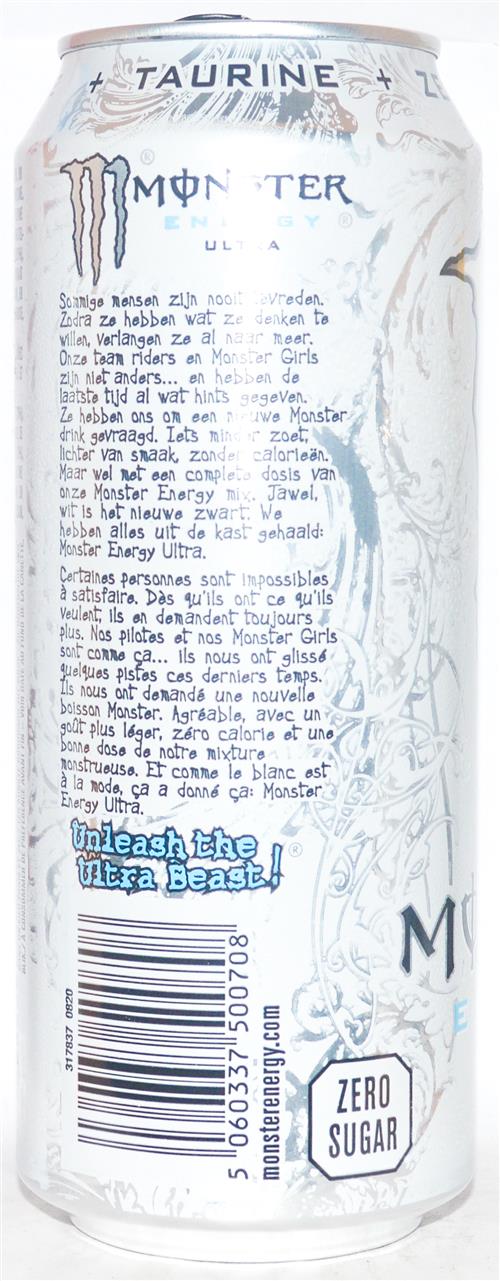 + TAURINE + ZE
MONSTER
ENERGY
ULTRA
Sommige mensen zijn nooit tevreden.
Zodra ze hebben wat ze denken te
willen, verlangen ze al naar meer.
Onze team riders en Monster Girls
zijn niet anders... en hebben de
laatste tijd al wat hints gegeven.
Ze hebben ons om een nieuwe Monster
drink gevraagd. Iets minder zoet,
lichter van smaak, zonder calorieën.
Maar wel met een complete dosis van
onze Monster Energy mix. Jawel,
wit is het nieuwe zwart. We
hebben alles uit de kast gehaald:
Monster Energy Ultra.
Certaines personnes sont impossibles
à satisfaire. Dès qu'ils ont ce qu'ils
veulent, ils en demandent toujours
plus. Nos pilotes et nos Monster Girls
sont comme ça... ils nous ont glissé
quelques pistes ces derniers temps.
Ils nous ont demandé une nouvelle
boisson Monster. Agréable, avec un
goût plus léger, zéro calorie et une
bonne dose de notre mixture
monstrueuse. Et comme le blanc est
à la mode, ça a donné ça: Monster
Energy Ultra.
Unleash the
Ultra Beast!®
317837 0820
5 060337 500708
monsterenergy.com
ZERO
SUGAR